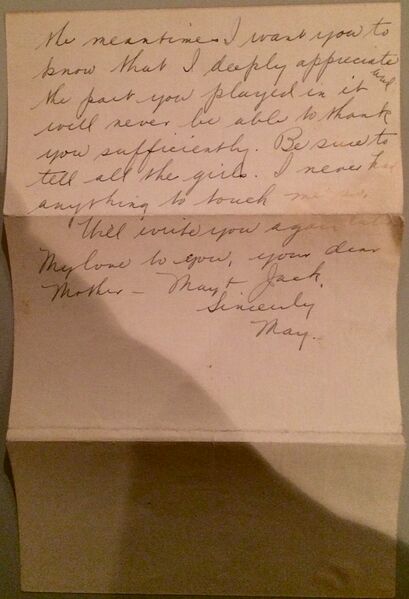 the meantime I want you to
know that I deeply appreciate
the part you played in it and
will never be able to thank
you sufficiently. Be sure to
tell all the girls. I never had
anything to touch me so.
Will write you again
My love to you, your dear
Mother - May & Jack.
Sincerely
May.